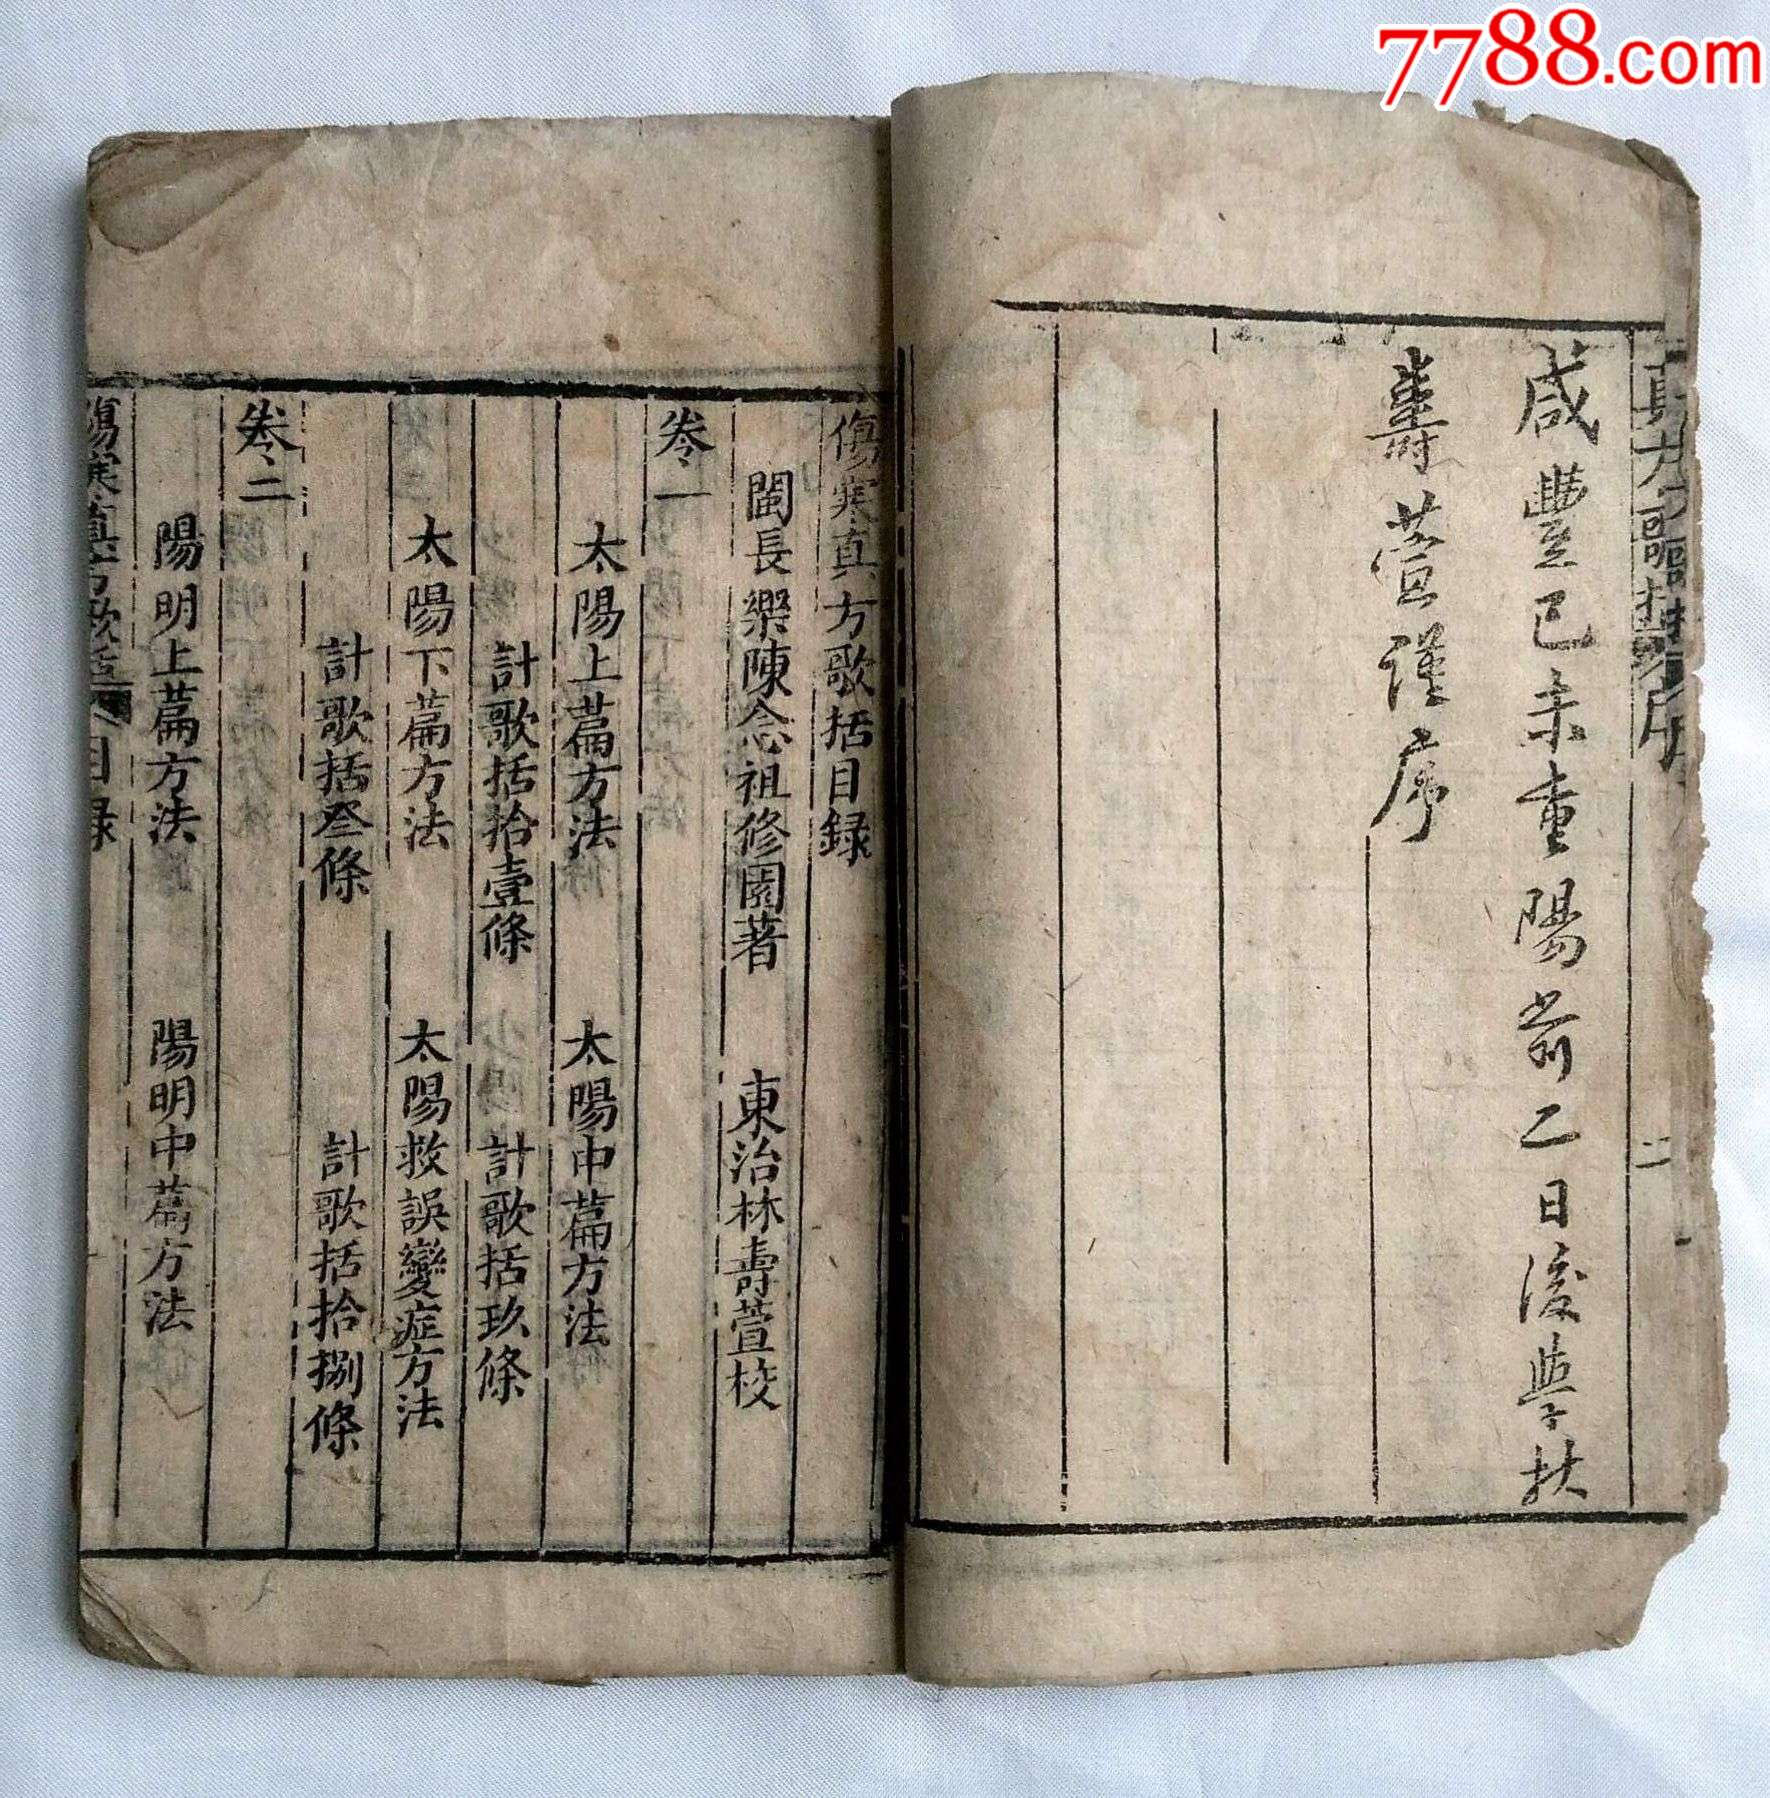 7788.com
真方歌括 序
二
咸豐己未重陽前二日後學林
壽萱謹序
傷寒真方歌括目錄
閩長樂陳念祖修園著 東治林壽萱校
卷一
太陽上篇方法 太陽中篇方法
計歌括拾壹條 計歌括玖條
太陽下篇方法 太陽救誤變症方法
計歌括叁條 計歌括拾捌條
卷二
陽明上篇方法 陽明中篇方法
傷寒真方歌括 目錄